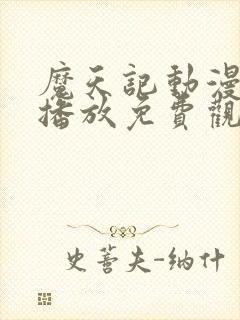 魔天記動漫
播放免費觀
史蒈夫-纳什